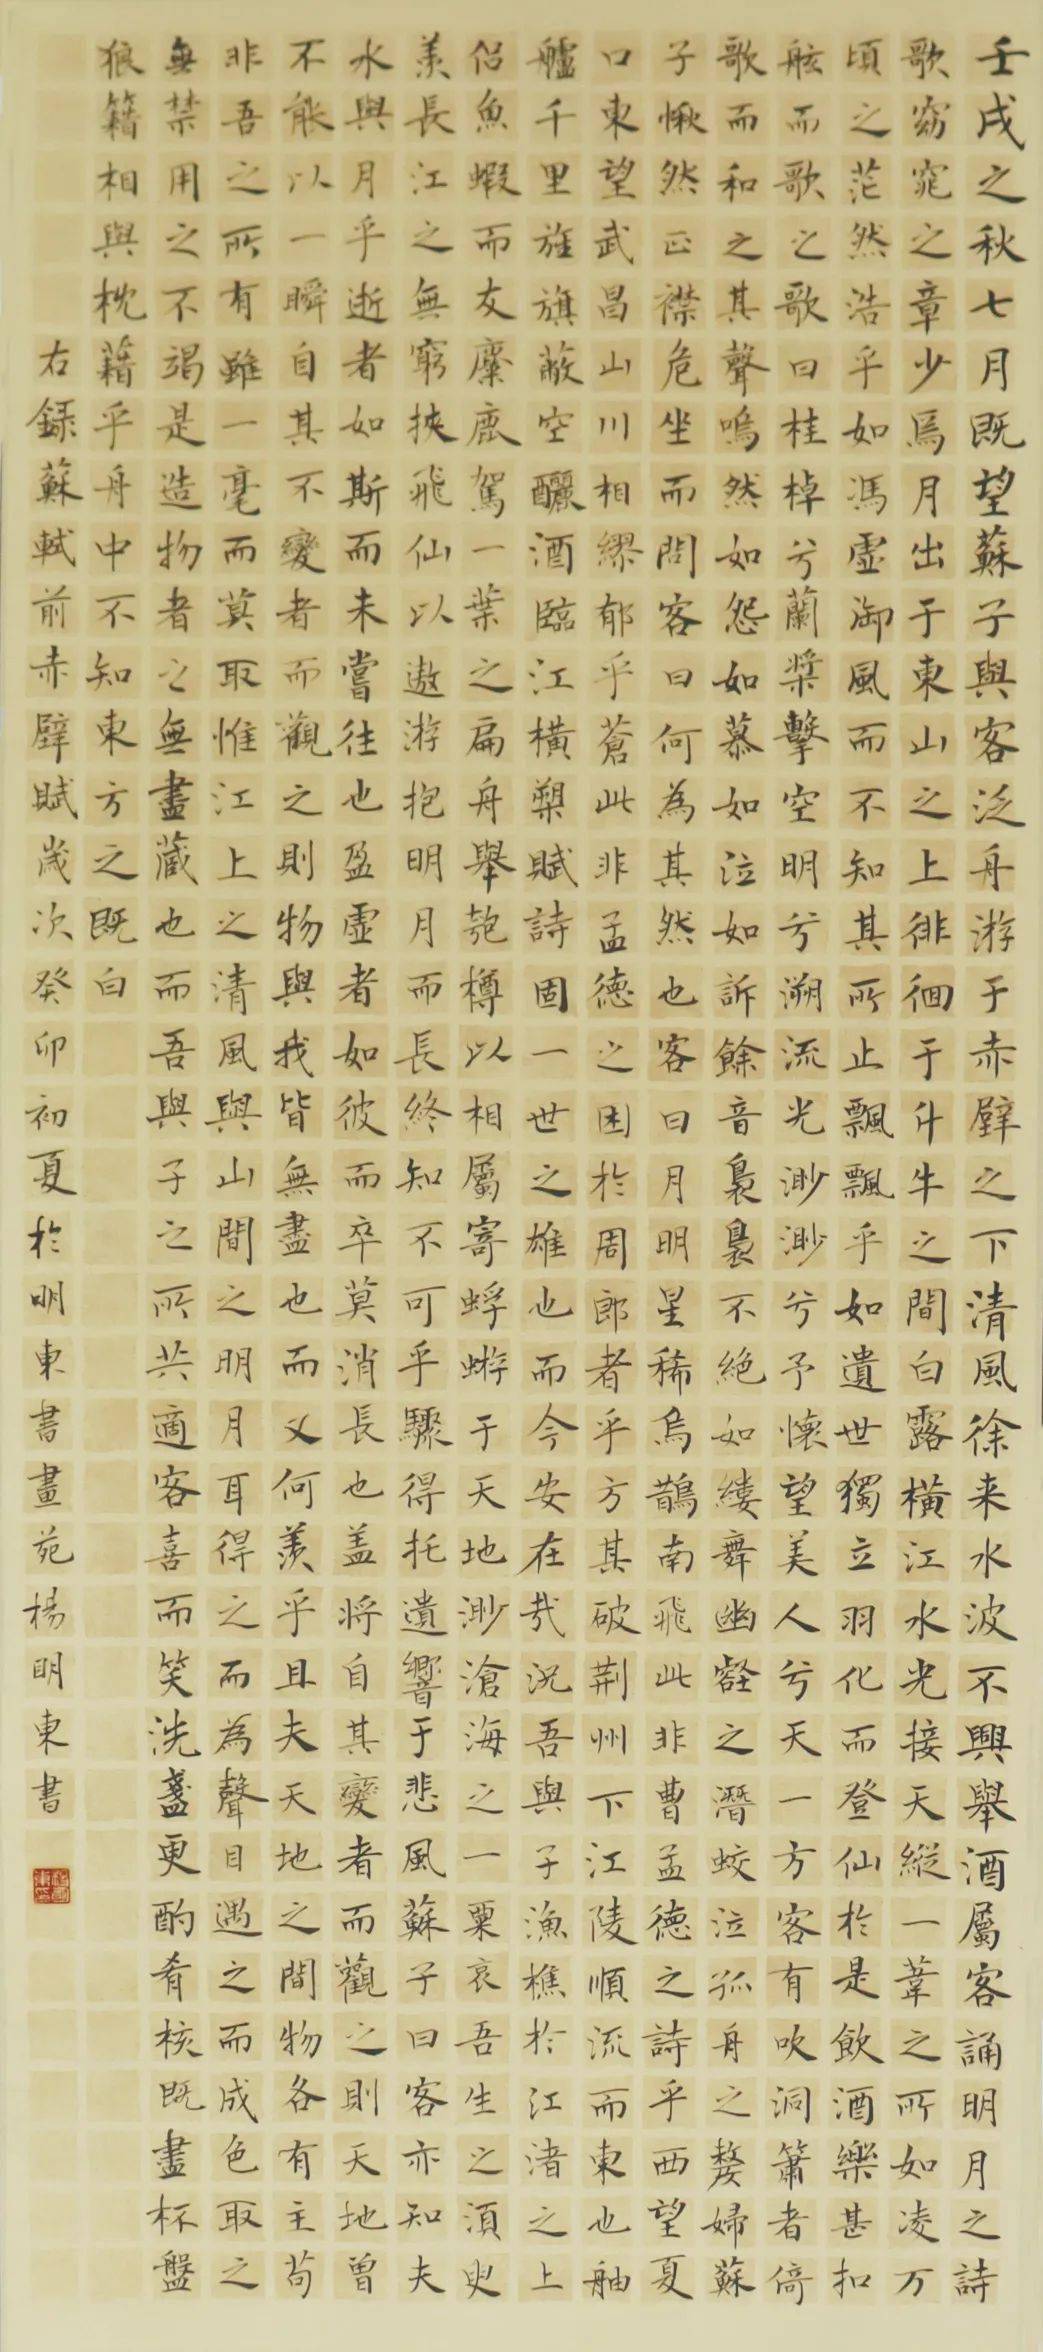 壬戌之秋七月既望蘇子與客泛舟游于赤壁之下清風徐来水波不興舉酒屬客誦明月之詩
歌窈窕之章少焉月出于東山之上徘徊于斗牛之間白露橫江水光接天縱一葦之所如凌万
頃之茫然浩乎如馮虛御風而不知其所止飄飄乎如遺世獨立羽化而登仙於是飲酒樂甚扣
舷而歌之歌曰桂棹兮蘭槳擊空明兮溯流光渺渺兮予懷望美人兮天一方客有吹洞簫者倚
歌而和之其聲嗚然如怨如慕如泣如訴餘音裊裊不絕如縷舞幽壑之潛蛟泣孤舟之嫠婦蘇
子愀然正襟危坐而問客曰何為其然也客曰月明星稀烏鵲南飛此非曹孟德之詩乎西望夏
口東望武昌山川相繆郁乎蒼此非孟德之困於周郎者乎方其破荆州下江陵順流而東也舳
艫千里旌旗蔽空釃酒臨江橫槊賦詩固一世之雄也而今安在哉況吾與子漁樵於江渚之上
侣魚蝦而友麋鹿駕一葉之扁舟舉匏樽以相屬寄蜉蝣于天地渺滄海之一粟哀吾生之須臾
羨長江之無窮挾飛仙以遨游抱明月而長終知不可乎驟得托遺響于悲風蘇子曰客亦知夫
水與月乎逝者如斯而未嘗往也盈虛者如彼而卒莫消長也盖將自其變者而觀之則天地曾
不能以一瞬自其不變者而觀之則物與我皆無盡也而又何羨乎且夫天地之間物各有主苟
非吾之所有雖一毫而莫取惟江上之清風與山間之明月耳得之而為聲目遇之而成色取之
無禁用之不竭是造物者之無盡藏也而吾與子之所共適客喜而笑洗盞更酌肴核既盡杯盤
狼籍相與枕藉乎舟中不知東方之既白
右録蘇軾前赤壁賦歲次癸卯初夏於明東書畫苑楊明東書